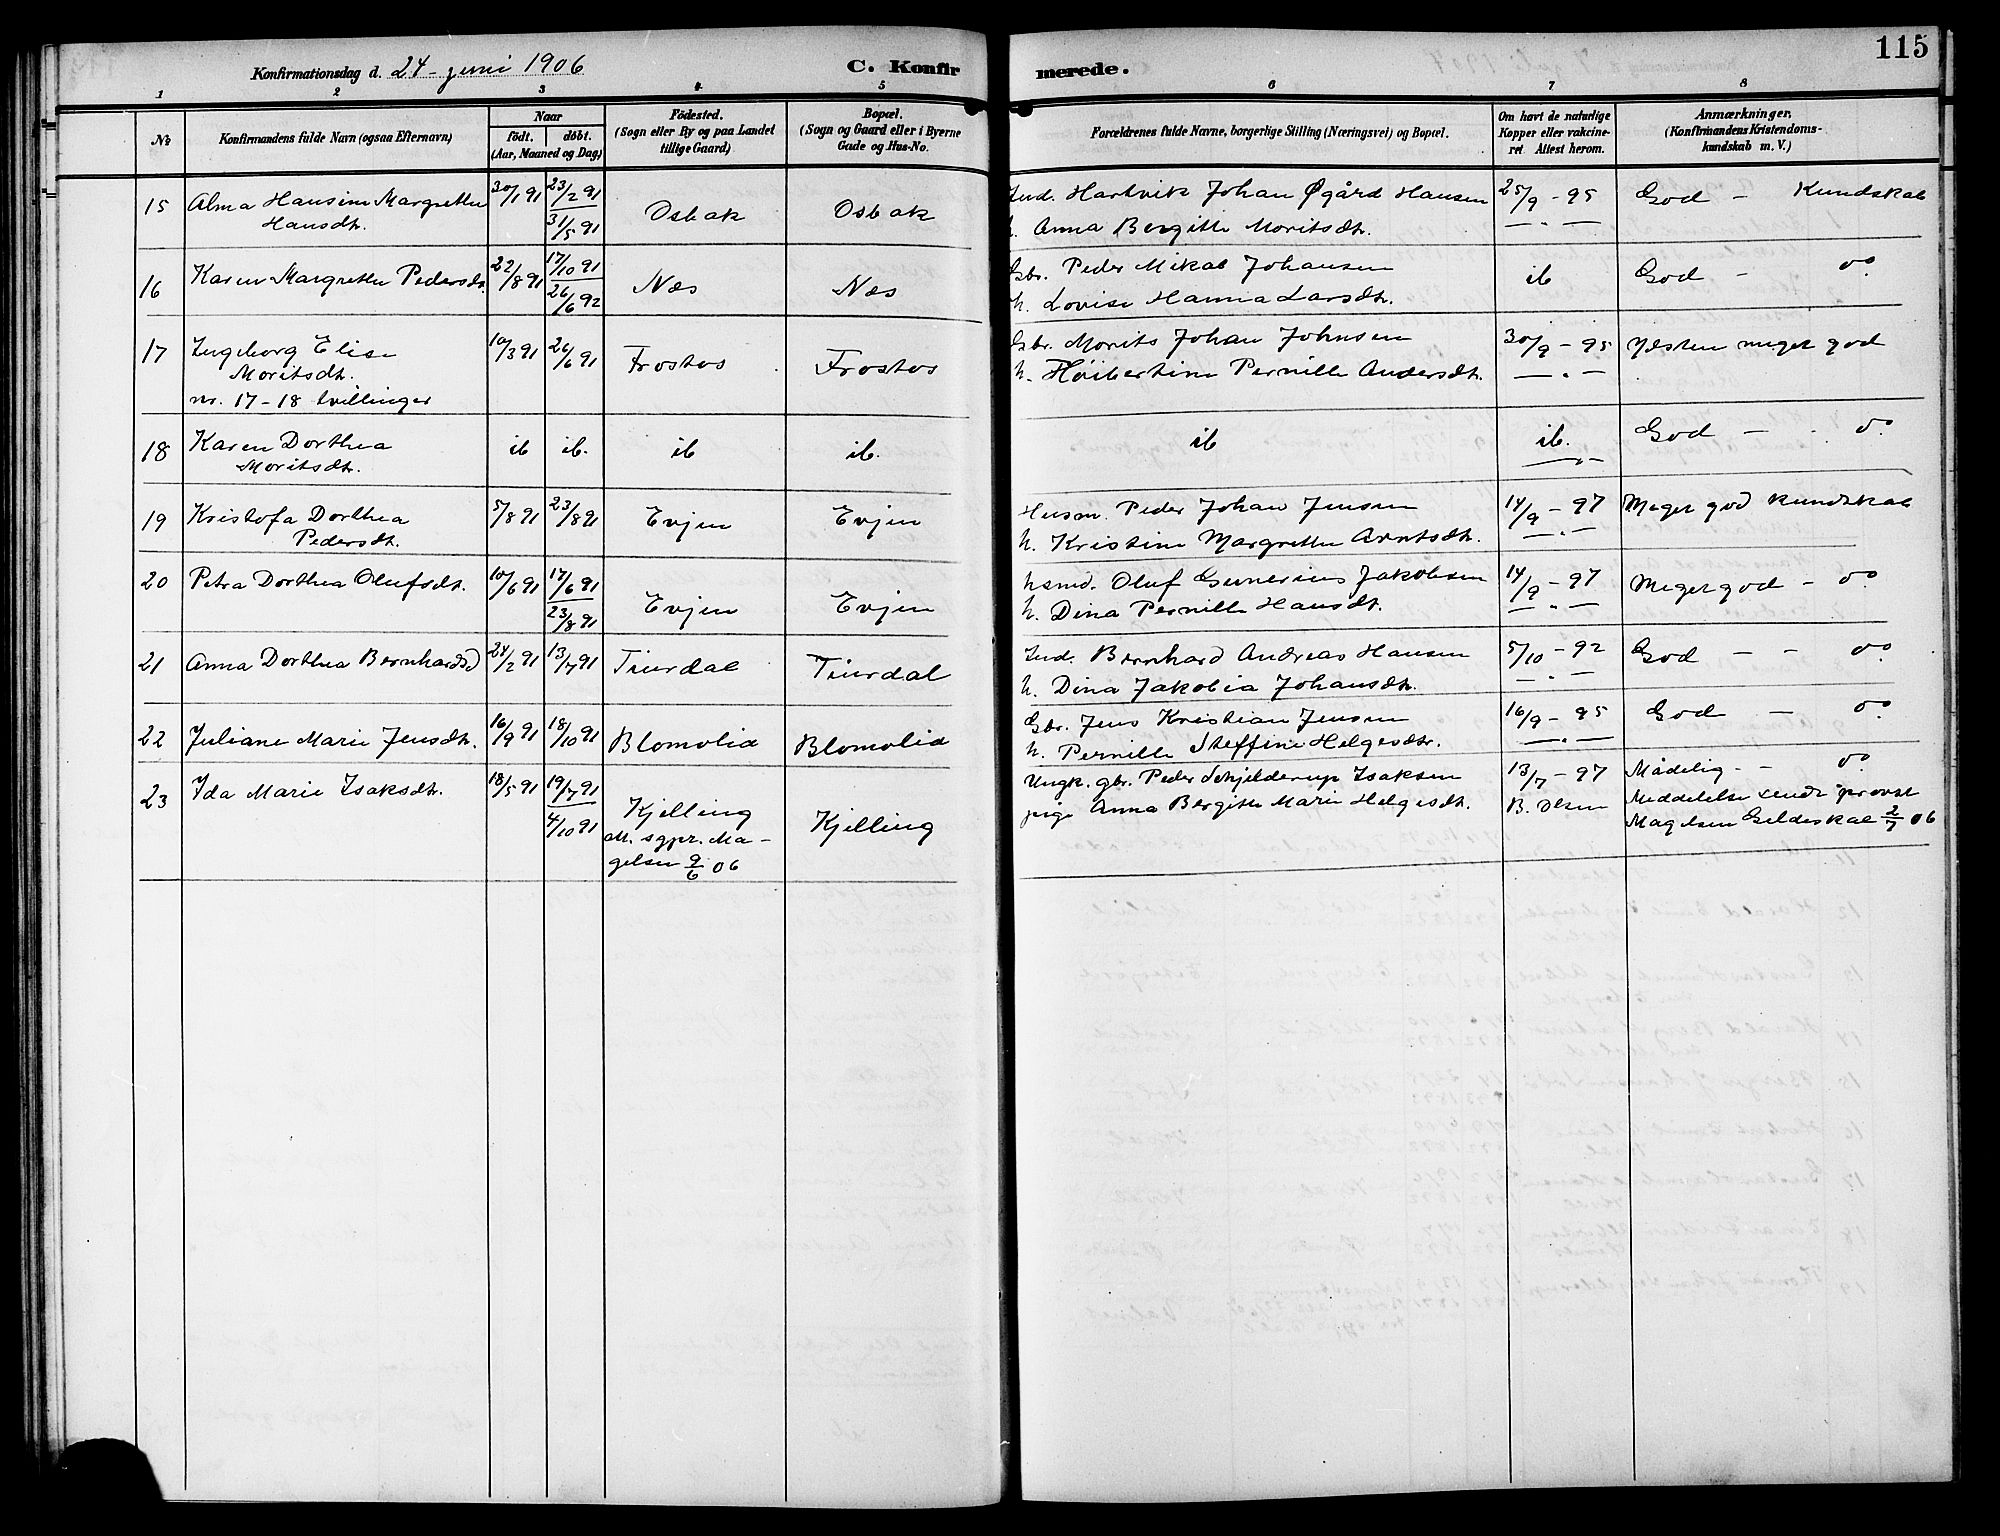 115
Konfirmationsdag d. 24 - juni 1906
C. Konfirmerede.
1 2 3 4 5 6 7 8
No
Konfirmandens fulde Navn (ogsaa Efternavn)
Naar
födt. döbt.
(Aar, Maaned og Dag)
Födested.
(Sogn eller By og paa Landet
tillige Gaard)
Bopæl.
(Sogn og Gaard eller i Byerne
Gade og Hus-No.
Forældrenes fulde Navne, borgerlige Stilling (Næringsvei) og Bopæl.
Om havt de naturlige
Kopper eller vakcine-
ret Attest herom.
Anmærkninger.
(Konfirmandens Kristendoms-
kundskab m. V.)
15 Alma Hansine Margrethe 30/1 91 23/2 91 Ind. Hartvik Johan Øgård Hansen 25/9 - 95 God - Kundskab
Hansdtr. 31/5 91 Osbak Osbak h. Anna Bergitte Moritsdtr. - „ -
16 Karen Margrethe Pedersdtr. 22/8 91 17/10 91 Gbr. Peder Mikal Johansen ib God - do
26/6 92 Næs Næs h. Lovise Hanna Larsdtr.
17 Ingeborg Elise 10/3 91 26/6 91 Gbr. Morits Johan Johnsen 30/9 - 95 Næsten meget god
Moritsdtr. Frostos Frostos h. Høibertine Pernille Andersdtr. - „ -
nr. 17-18 tvillinger
18 Karen Dorthea ib ib. ib ib. ib ib. God - - do
Moritsdtr.
19 Kristofa Dorthea 5/8 91 23/8 91 Evjen Evjen Husm. Peder Johan Jensen 14/9 - 97 Meget god kundskab
Pedersdtr. h. Kristine Margrethe Arntsdtr. - „ -
20 Petra Dorthea Olufsdtr. 10/6 91 17/6 91 husmd. Oluf Gunerius Jakobsen 14/9 - 97 Meget god - do
23/8 91 Evjen Evjen h. Dina Pernille Hansdtr. - „ -
21 Anna Dorthea Bernhardsd 24/2 91 13/7 91 Tiurdal Tiurdal Ind. Bernhard Andreas Hansen 5/10 - 92 God - - do
h. Dina Jakobia Johansdtr. - „ -
22 Juliane Marie Jensdtr. 16/9 91 18/10 91 Blomolid Blomolid Gbr. Jens Kristian Jensen 16/9 - 95 God - do
h. Pernille Steffine Helgesdtr. - „ -
23 Ida Marie Isaksdtr. 18/5 91 19/7 91 Ungk. gbr. Peder Schjelderup Isaksen 13/7 - 97 Mådelig - do
4/10 91 Kjelling Kjelling pige Anna Bergitte Marie Helgesdtr. B. Olsen Meddelelse sendt provst
M. sgpr. Ma- Magelsen Gildeskål 2/7 06
gelsen 9/6 06